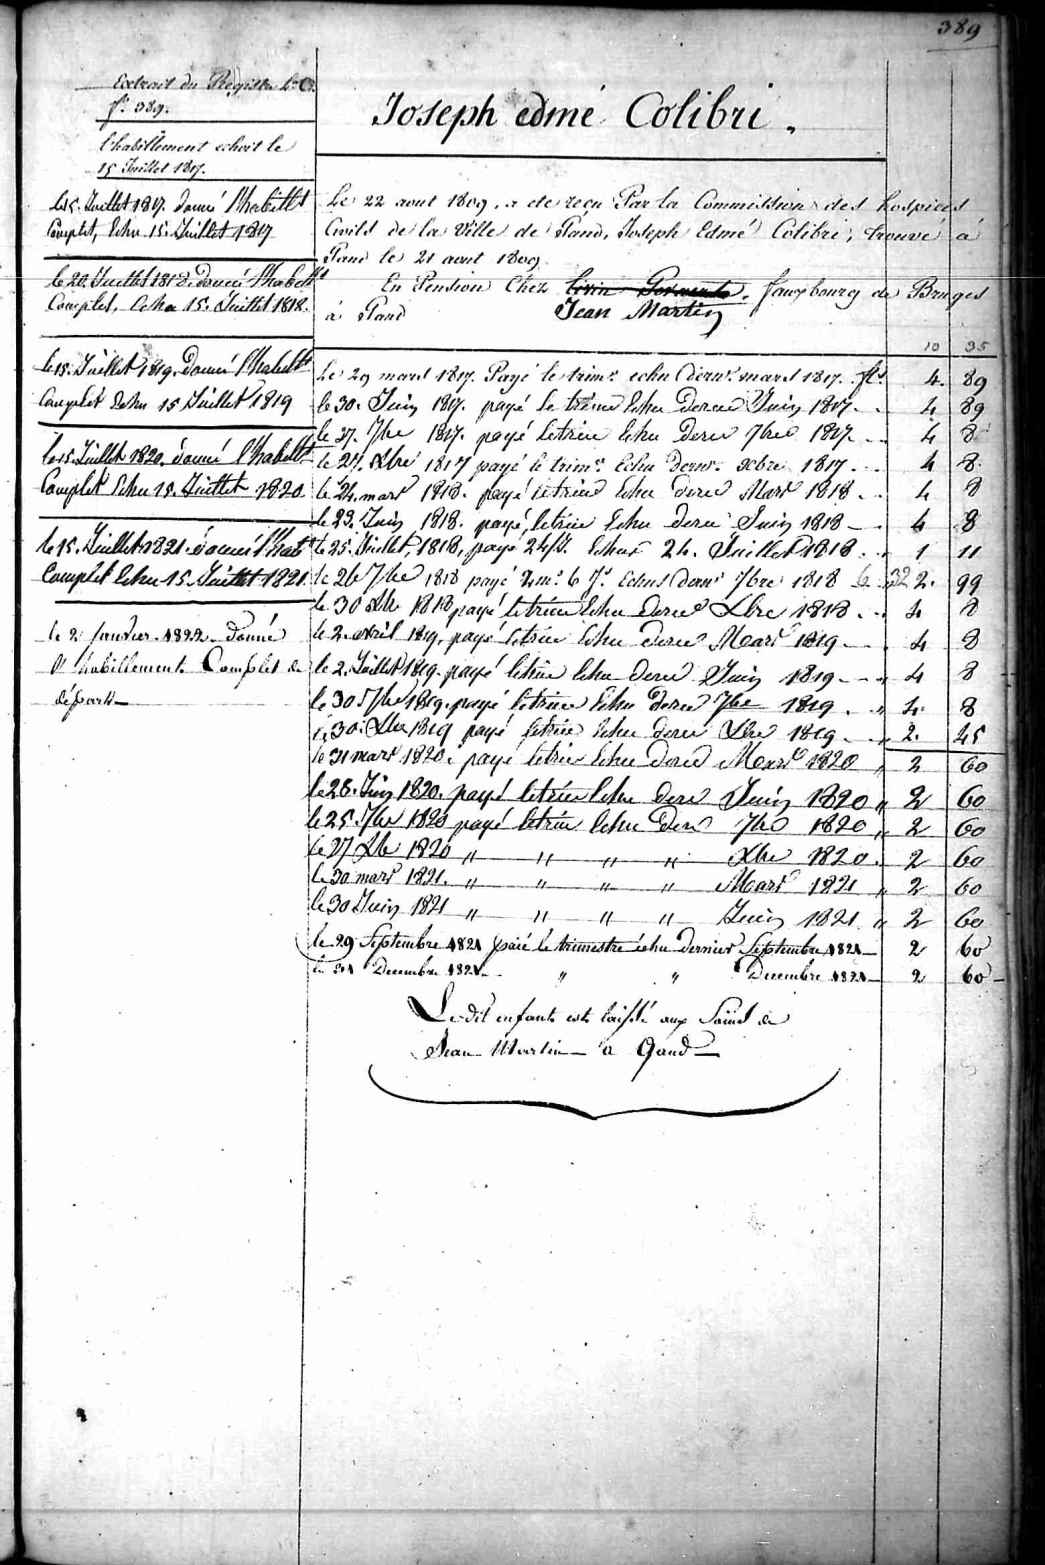 389
Extrait du Registre
f.º 389.
l'habillement echoit le
15 Juillet 1817.
le 15. Juillet 1817. donné l'habillt
Complet, Echu 15. Juillet 1817
le 20. Juillet 1818. donné l'habillt
Complet, Echu 15. Juillet 1818.
le 15. Juillet 1819. Donné l'habillt
Complet Echu 15 Juillet 1819
le 15. Juillet 1820. donné l'habillt
Complet Echu 15. Juillet 1820
le 15. Juillet 1821. donné l'habt
Complet Echu 15. Juillet 1821
le 2 Janvier 1822 Donné
l'habillement Complet de
départ
Joseph edmé Colibri.
Le 22 aout 1809, a ete reçu Par la Commission des hospices
Civils de la Ville de Gand, Joseph Edmé Colibri, trouvé à
Gand le 21 aout 1809
En Pension Chez Livin fauxbourg de Bruges
à Gand Jean Martin
10 35
Le 29 mars 1817. Payé le trimre echu dernr mars 1817. fls 4. 89
le 30. Juin 1817. payé le trime Echu derne Juin 1817. 4 89
le 27. 7bre 1817. payé letrim Echu dernr 7bre 1817. 4 8
le 27. Xbre 1817 payé le trimre Echu dernr Xbre 1817. 4 8
le 24. mars 1818. payé letrim Echu dernr Mars 1818. 4 8
le 23. Juin 1818. payé, letrim Echu dernr Juin 1818 4 8
le 25. Juillet, 1818, payé 24 Js. Echus 24. Juillet 1818. 1 11
le 26 7bre 1818 payé 2 ms 6 Js Echus dernr 7bre 1818 2. 99
le 30 Xbre 1818 payé letrim Echu dernr Xbre 1818 4 8
le 2. avril 1819, payé letrim Echu dernr Mars 1819 4 8
le 2. Juillet 1819. payé letrim Echu dernr Juin 1819 4 8
le 30 7bre 1819. payé letrim Echu dernr 7bre 1819 „ 4. 8
le 30. Xbre 1819 payé letrim Echu dernr Xbre 1819 „ 2. 45
le 31 mars 1820. payé letrim Echu dernr Mars 1820 „ 2 60
le 28. Juin 1820. payé letrim Echu dernr Juin 1820 „ 2 60
le 25. 7bre 1820 payé letrim Echu dernr 7bre 1820 „ 2 60
le 27 Xbre 1820 „ „ „ „ Xbre 1820. 2 60
le 30 mars 1821. „ „ „ „ Mars 1821 „ 2 60
le 30 Juin 1821 „ „ „ „ Juin 1821 „ 2 60
le 29 Septembre 1821 paié le trimestre échu dernier Septembre 1821 2 60
le 31 Decembre 1821 „ „ Decembre 1821 2 60
Le dit enfant est laissé aux Soins de
Jean Martin à Gand